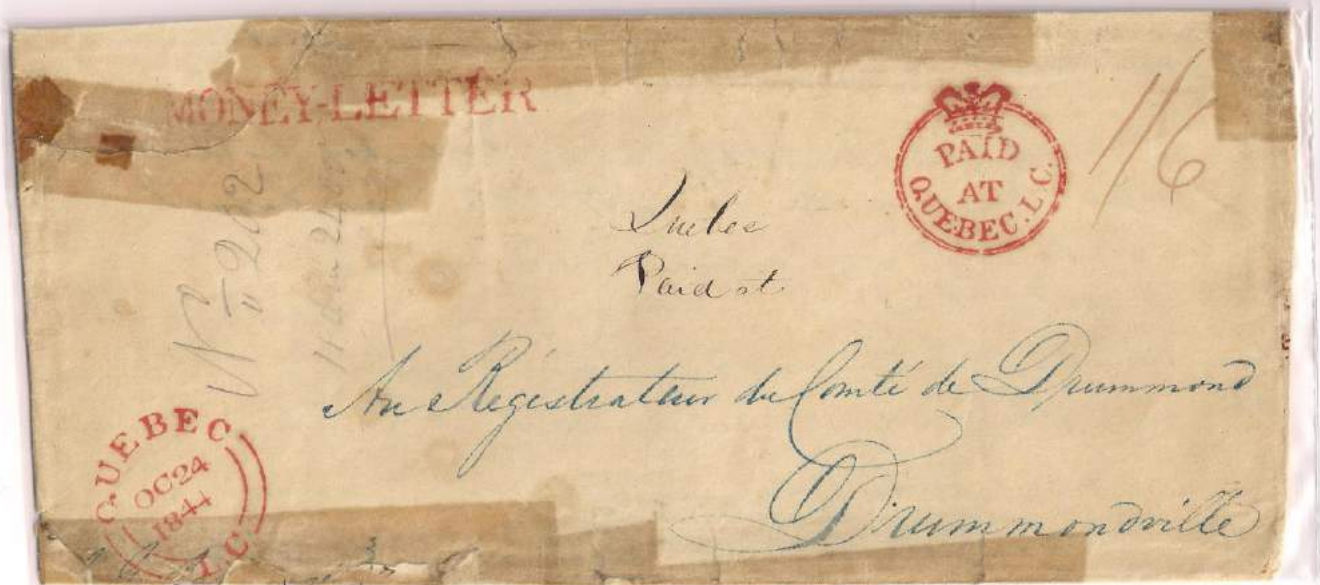 MONEY-LETTER
PAID
AT
QUEBEC. L.C.
1/6
No 202
Paid at
Au Régistrateur du Comté de Drummond
Drummondville
QUEBEC
OC 24
1844
L C